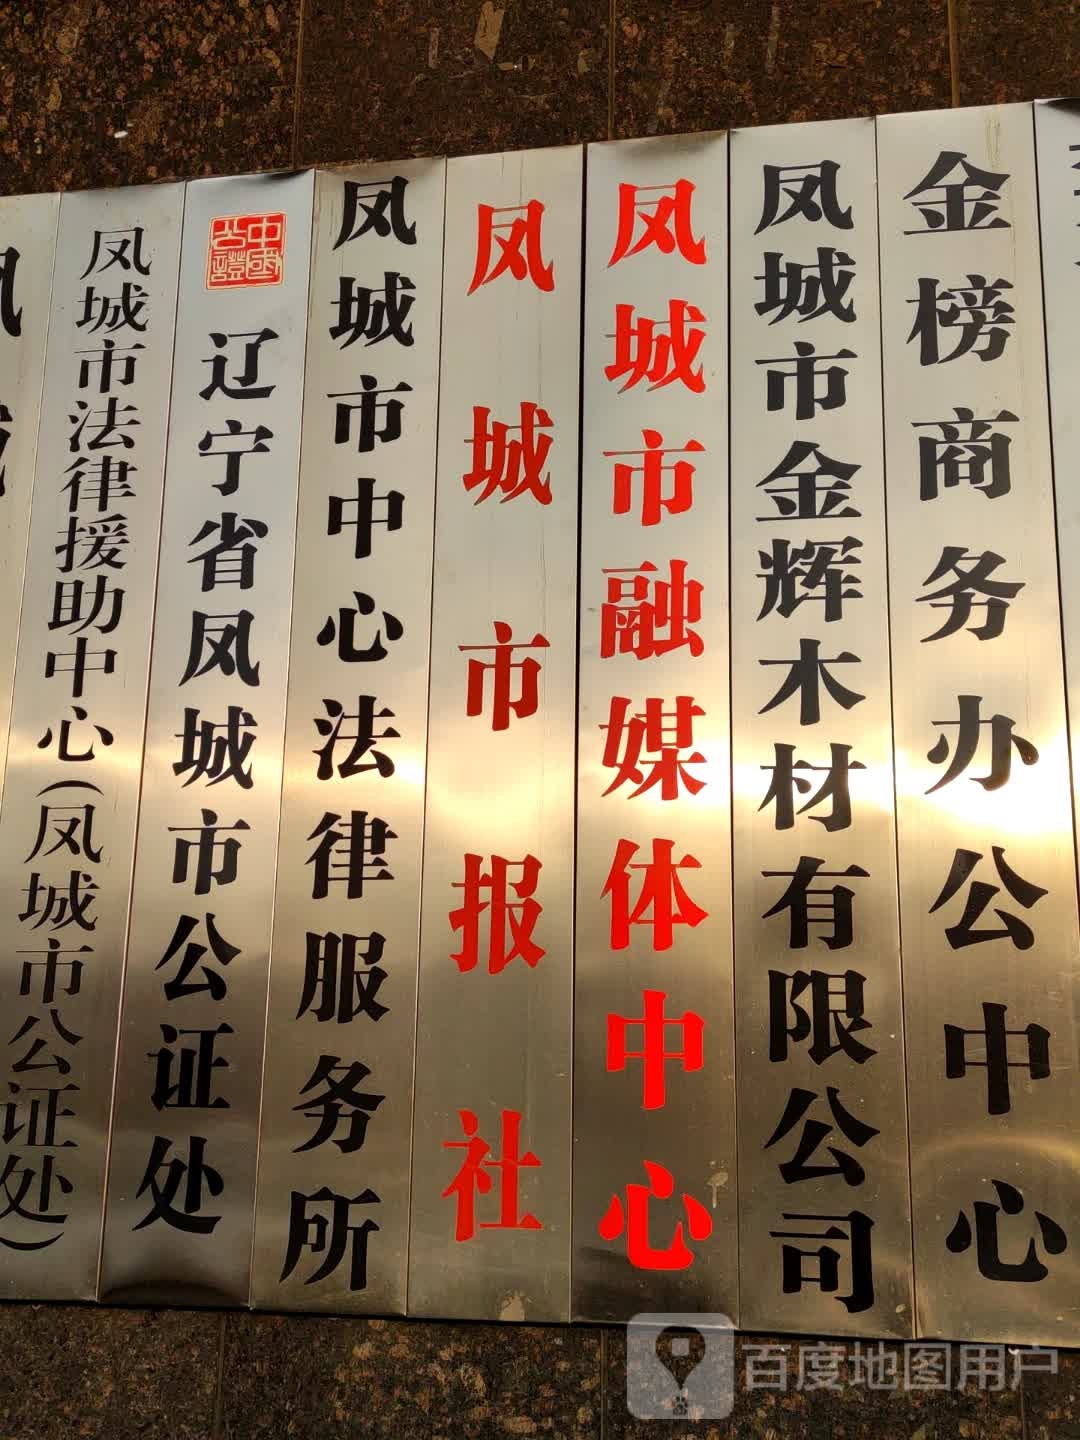 凤城
凤城市法律援助中心(凤城市公证处)
中国公證
辽宁省凤城市公证处
凤城市中心法律服务所
凤城市报社
凤城市融媒体中心
凤城市金辉木材有限公司
金榜商务办公中心
百度地图用户